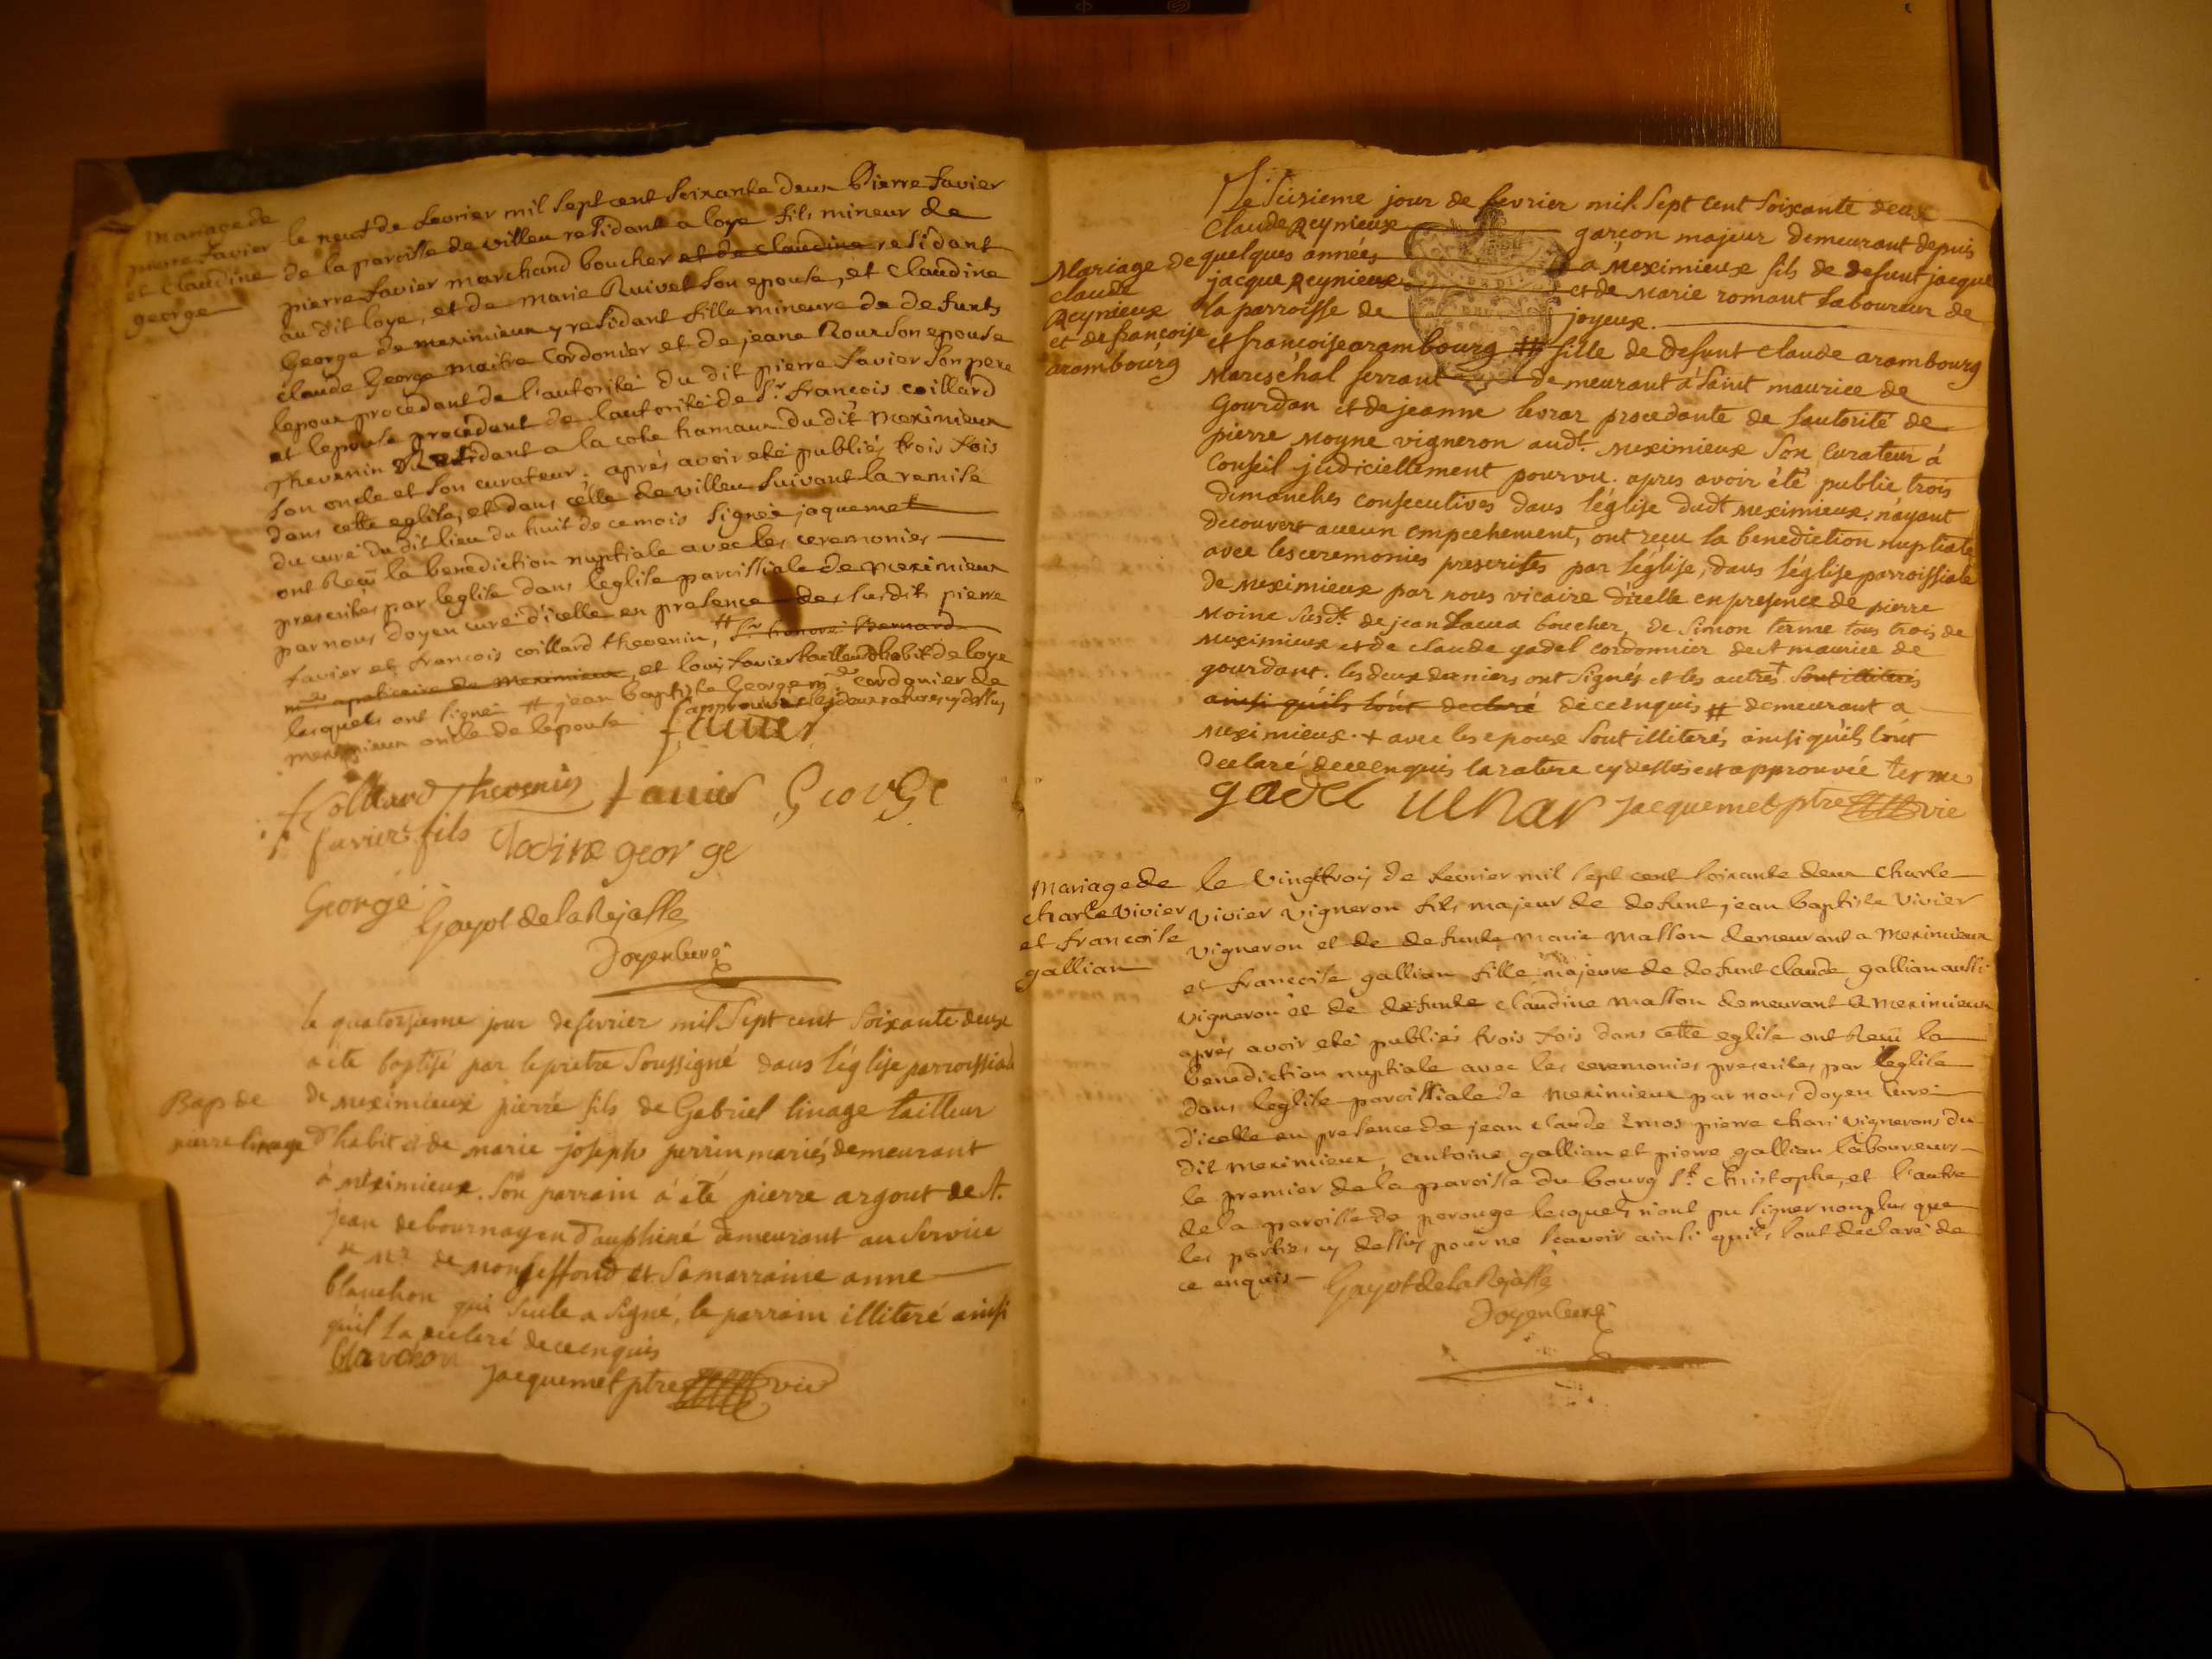 Mariage de
pierre favier
et Claudine
george
le neuf de fevrier mil sept cent soixante deux Pierre favier
de la paroisse de villeu residant a loye fils mineur de
pierre favier marchand boucher et de claudine residant
au dit loye, et de marie Ruivet son epouse, et claudine
George de meximieux y residant fille mineure de defunts
claude George maitre Cordonier et de jeane Roux son epouse
lepoux procedant de l'autorité du dit pierre favier son pere
et lepouse procedant de lautorité de Sr. françois coillard
Thevenin Residant a la cote hamaux du dit Meximieux
son oncle et son curateur. aprés avoir eté publiés trois fois
dans cette eglise, et dans celle de villeu suivant la remise
du curé du dit lieu du huit de ce mois signée jaquemet
ont Reçu la benediction nuptiale avec les ceremonies
prescrites par leglise dans leglise paroissiale de Meximieux
par nous doyen curé d'icelle en presence des susdits pierre
favier et francois coillard thevenin, # Sr. honoré Bernard
md apoticaire de Meximieux, et louis favier tailleur d'habit de loye
lesquels ont signé # jean baptiste George md cordonier de
meximieux oncle de lepouse japprouve les deux ratures cy dessus
favier
f Collard Thevenin favier George
favier fils Clodine george
George
Gayot de la Rejasse
Doyen Curé
Bap de
pierre linage
le quatorsieme jour de fevrier mil Sept cent Soixante deux
a été baptisé par le pretre Soussigné dans l'église parroissiale
de meximieux pierre fils de Gabriel linage tailleur
d'habit et de marie josephe perrin mariés demeurant
à méximieux. Son parrain a été pierre argout de St.
jean de bournay en Dauphiné demeurant au service
de Mr de et Sa marraine anne
blanchon qui seule a signé, le parrain illiteré ainsi
qu'il l'a declaré de ce enquis
blanchon
Jacquemet ptre vic
Mariage de
claude
Reynieux
et de françoise
arambourg
Le Seisieme jour de fevrier mil Sept Cent Soixante deux
Claude Reynieux garçon majeur demeurant depuis
quelques années a Meximieux fils de defunt jacque
jacque Reynieux et de Marie romant Laboureur de
la parroisse de joyeux.
et françoise arambourg # fille de defunt claude arambourg
Mareschal ferrant demeurant à Saint maurice de
Gourdan et de jeanne levrar procedante de l'autorité de
pierre Moyne vigneron audt. Meximieux Son Curateur à
Conseil judiciellement pourvu. apres avoir été publie trois
dimanches consecutives dans l'église dudt meximieux. nayant
decouvert aucun empechement, ont reçu la benediction nuptiale
avec les ceremonies prescrites par l'église, dans l'église parroissiale
de meximieux par nous vicaire d'icelle en presence de pierre
Moine Susdt. de jean boucher, de Simon terme tous trois de
meximieux et de claude gadel cordonnier de st maurice de
gourdant. les deux derniers ont Signés et les autres + Sont illiterés
ainsi qu'ils l'ont declaré de ce enquis # demeurant a
meximieux. + avec les epoux Sont illiterés ainsi qu'ils l'ont
declaré de ce enquis la rature cy dessus est approuvée terme
gadel Jacquemet ptre vic
Mariage de
charle vivier
et francoise
gallian
le vingt trois de fevrier mil sept cent soixante deux charle
vivier vigneron fils majeur de defunt jean baptiste vivier
vigneron et de defunte marie masson demeurant a Meximieux
et francoise gallian fille majeure de defunt claude gallian aussi
vigneron et de defunte claudine masson demeurant a meximieux
aprés avoir eté publiés trois fois dans cette eglise ont Reçu la
benediction nuptiale avec les ceremonies prescrites par leglise
dans leglise paroissiale de Meximieux par nous doyen curé
d'icelle en presence de jean claude pierre chari vignerons du
dit Meximieux, antoine gallian et pierre gallian laboureurs
le premier de la paroisse du bourg St. christophe, et l'autre
de la paroisse de perouge lesquels n'ont pu signer non plus que
les parties cy dessus pour ne scavoir ainsi quils l'ont declaré de
ce enquis - Gayot de la Rejasse
Doyen Curé